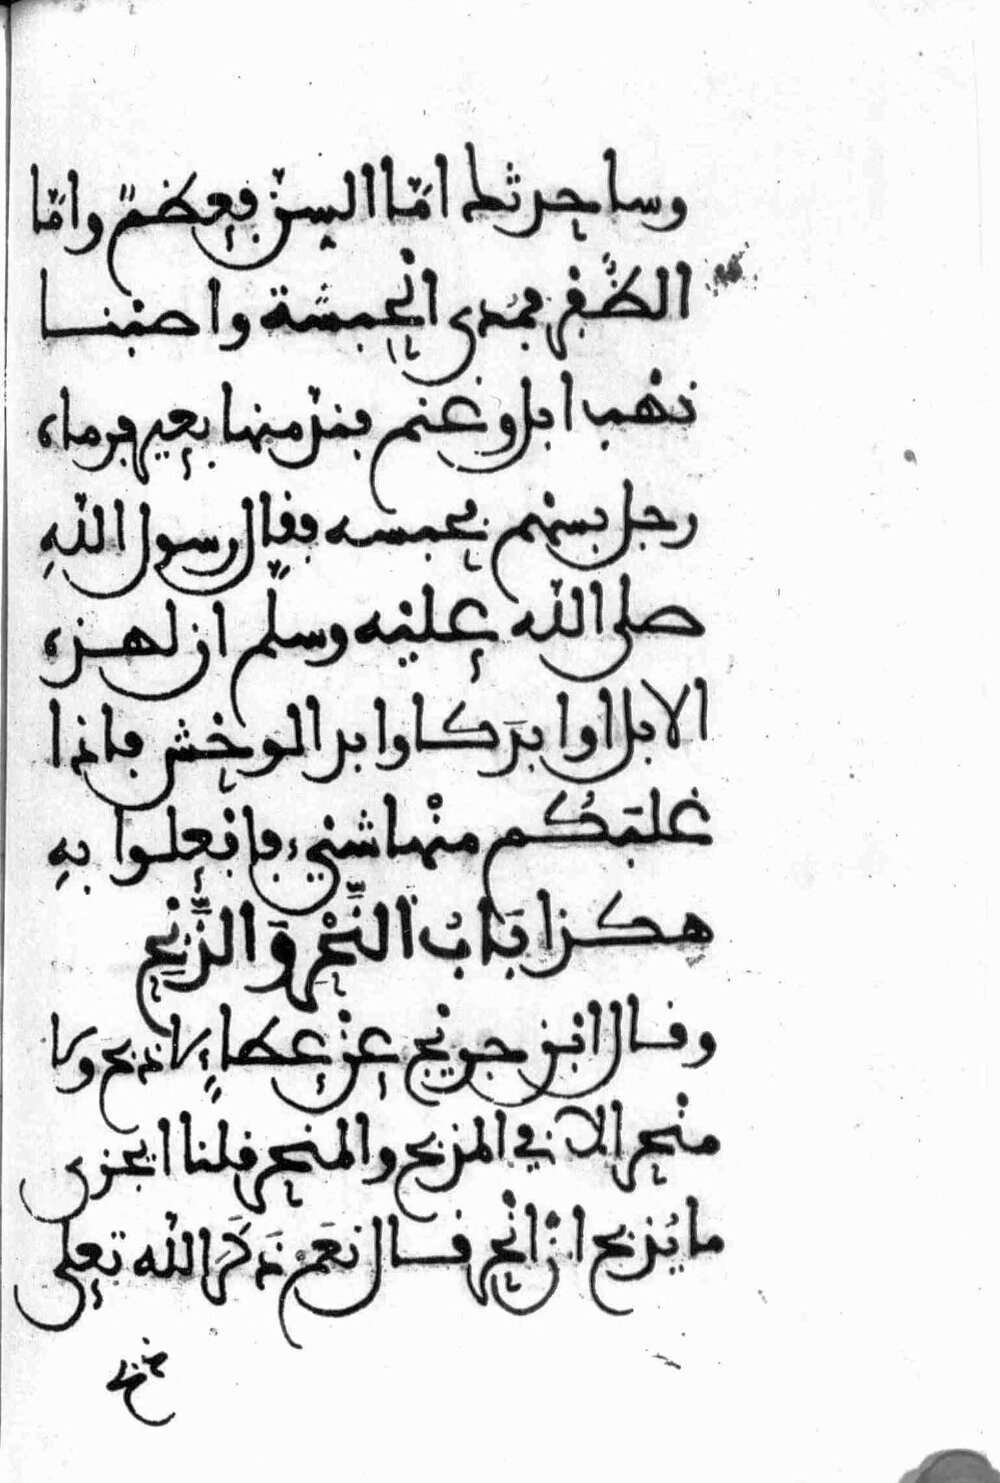 وساحدثك اما السن فعظم واما
الظفر فمدى الحبشة واصبنا
نهب ابل وغنم فند منها بعير فرماه
رجل بسهم فحبسه فقال رسول الله
صلى الله عليه وسلم ان لهذه
الابل اوابد كاوابد الوحش فاذا
غلبكم منها شيء فافعلوا به
هكذا بَابُ النَّحْرِ وَالذَّبْحِ
وقال ابن جريج عن عطاء لا ذبح ولا
منحر الا في المذبح والمنحر قلنا ايجزي
ما يُذبح ان انحر قال نعم ذَكَرَ الله تعلى
ذبح